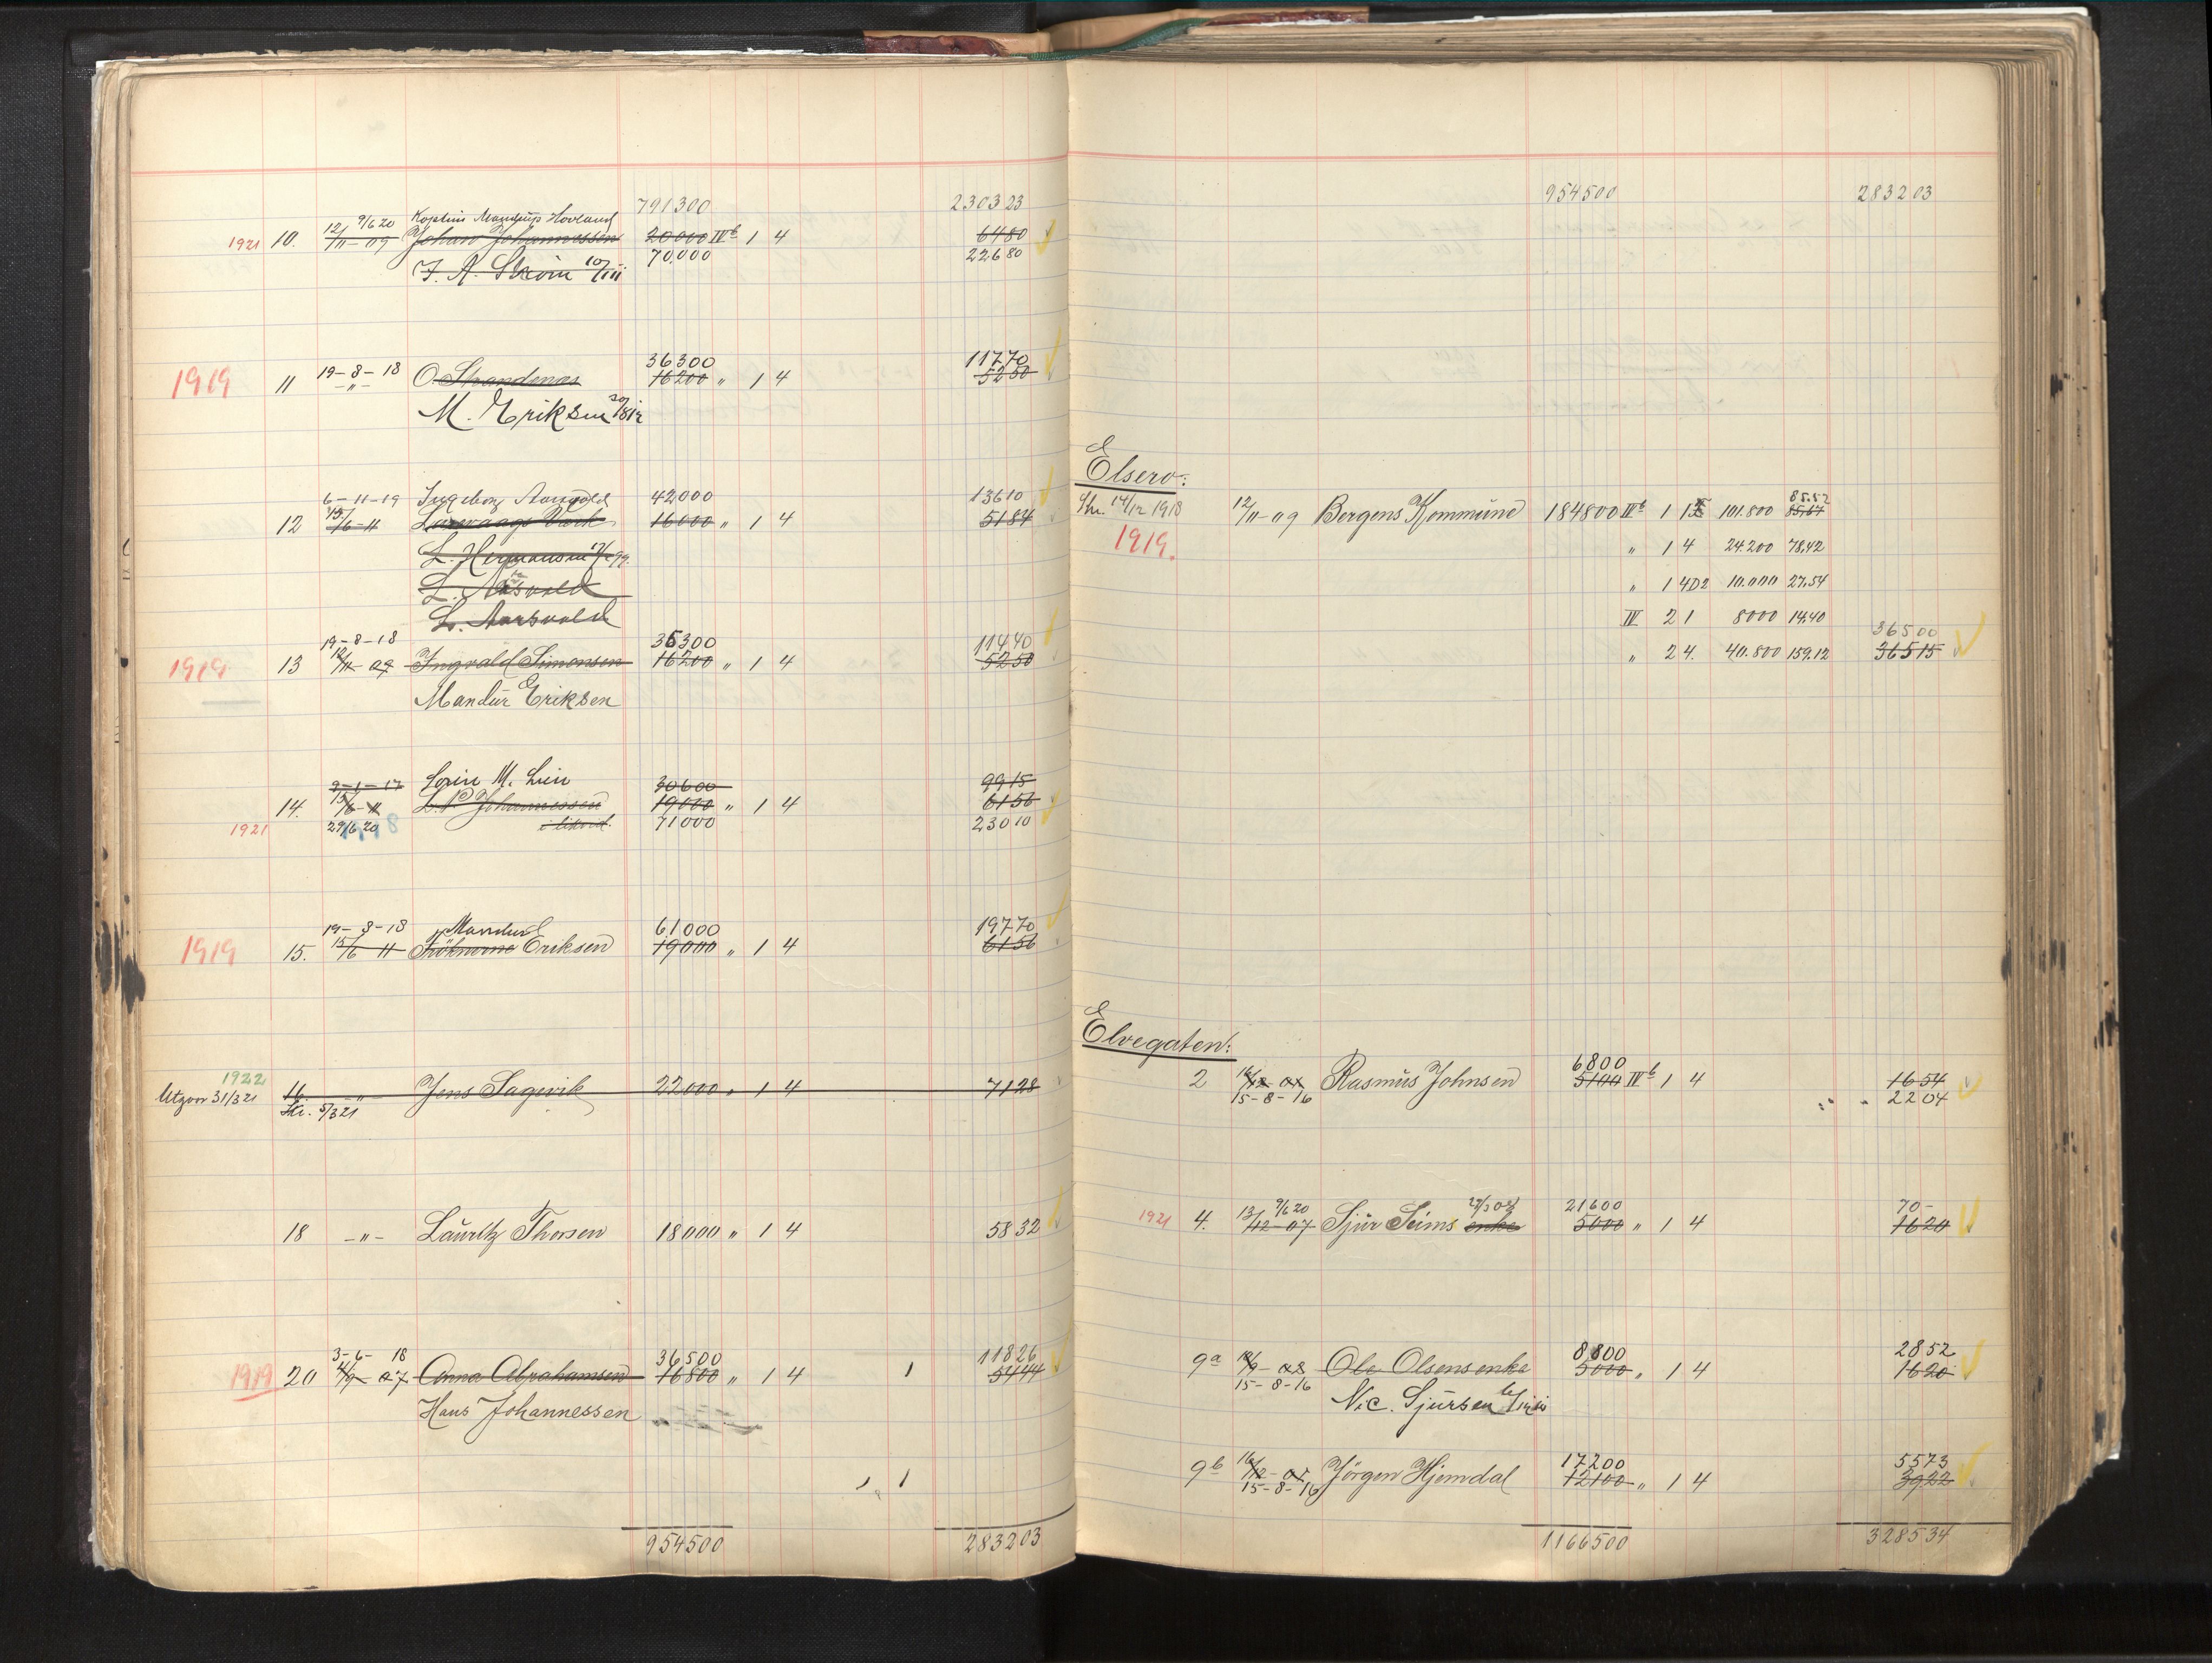 791300 230323
9/6 20 Kaptein Mandrup Hovland
1921 10. 12/11-09 Johan Johannessen 20000 IVb 1 4 6480
70.000 22680
19-8-18 36300 11770
1919 11 -"- O. Strandenæs 16200 " 1 4 5250
M. Eriksen
6-11-19 Ingeborg 42000 13610
12 15/6-11 16000 " 1 4 5184
L. Hermansen
L. Aarsvold
19-8-18 35300 11440
1919 13 12/11-09 Ingvald Simonsen 16200 " 1 4 5250
Mandür Eriksen
9-1-17 M. Lien 30600 9915
14. 15/6-11 Johannessen 19000 " 1 4 6156
1921 29/6 20 71000 23010
19-8-18 Mandur 61000 19770
1919 15. 15/6 11 Eriksen 19000 " 1 4 6156
1922
Utgaar 31/3 21 16. -"- Jens Sagevik 22000 " 1 4 7128
Skr. 5/3 21
18 -"- Laüritz Thorsen 18000 " 1 4 5832
3-6-18 36500 11826
1919 20 4/9-07 Anna Abrahamsen 16800 " 1 4 1 5444
Hans Johannessen
1
954500 283203
954500 283203
Elsero:
Skr. 14/12 1918 12/11-09 Bergens Kommüne 184800 IVb 1 1 101.800 85.52
1919. " 1 4 24.200 78,42
" 1 4D2 10.000 27.54
IV 2 1 8000 14.40
36500
" 2 4. 40.800 159.12 36515
Elvegaten:
6800
2 Rasmüs Johnsen 5100 IVb 1 4 1654
15-8-16 2204
9/6 20 21600 70-
1921 4. 13/12-07 Sjür Seims enke 5000 " 1 4 1620
8800 2852
9a Ole Olsens enke 5000 " 1 4 1620
15-8-16 Nic. Sjürsen
17200 5573
9b Jörgen Hjemdal 12100 " 1 4 3922
15-8-16
1166500 328534